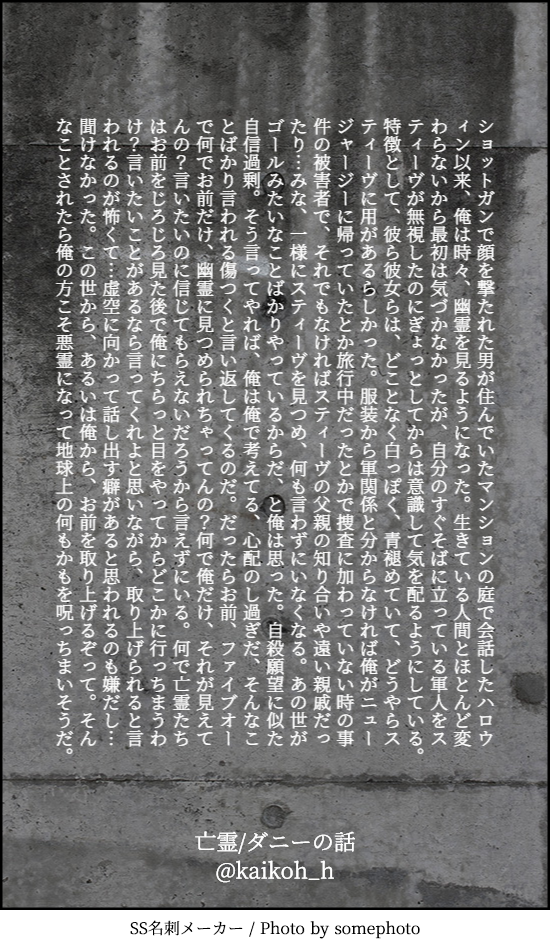 ショットガンで顔を撃たれた男が住んでいたマンションの庭で会話したハロウ
ィン以来、俺は時々、幽霊を見るようになった。生きている人間とほとんど変
わらないから最初は気づかなかったが、自分のすぐそばに立っている軍人をス
ティーヴが無視したのにぎょっとしてからは意識して気を配るようにしている。
特徴として、彼ら彼女らは、どことなく白っぽく、青褪めていて、どうやらス
ティーヴに用があるらしかった。服装から軍関係と分からなければ俺がニュー
ジャージーに帰っていたとか旅行中だったとかで捜査に加わっていない時の事
件の被害者で、それでもなければスティーヴの父親の知り合いや遠い親戚だっ
たり…みな、一様にスティーヴを見つめ、何も言わずにいなくなる。あの世が
ゴールみたいなことばかりやっているからだ、と俺は思った。自殺願望に似た
自信過剰。そう言ってやれば、俺は俺で考えてる、心配のし過ぎだ、そんなこ
とばかり言われる傷つくと言い返してくるのだ。だったらお前、ファイブオー
で何でお前だけ、幽霊に見つめられちゃってんの？何で俺だけ、それが見えて
んの？言いたいのに信じてもらえないだろうから言えずにいる。何で亡霊たち
はお前をじろじろ見た後で俺にちらっと目をやってからどこかに行っちまうわ
け？言いたいことがあるなら言ってくれよと思いながら、取り上げられると言
われるのが怖くて…虚空に向かって話し出す癖があると思われるのも嫌だし…
聞けなかった。この世から、あるいは俺から、お前を取り上げるぞって。そん
なことされたら俺の方こそ悪霊になって地球上の何もかもを呪っちまいそうだ。
亡霊/ダニーの話
@kaikoh_h
SS名刺メーカー / Photo by somephoto